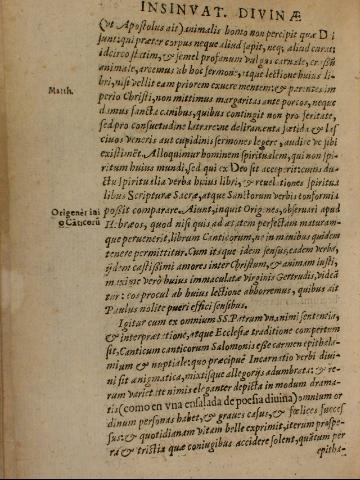 INSINVAT. DIVINÆ
(vt Apostolus ait) animalis homo non percipit quæ D i
sunt: qui præter corpus neque aliud sapit, neq; aliud curat:
idcirco statim, & semel profanum vulgus carnale, crassum
animale, arcemus ab hoc sermone, atque lectione huius li-
bri, nisi vellit eam priorem exuere mentem: & parentes im
perio Christi, non mittimus margaritas ante porcos, neque
damus sancta canibus, quibus contingit non pro feritate,
sed pro consuetudine latrare: ne deliramenta fœtida & las
ciuos veneris aut cupidinis sermones legere, audire ve sibi
existimẽt. Alloquimur hominem spiritualem, qui non spi-
ritum huius mundi, sed qui ex Deo sit acceperit: cumus du-
ctu spiritualia verba huius libri, & reuelationes spiritua
libus Scripturæ Sacræ, atque Sanctorum verbis conformia
possit comparare. Aiunt, inquit Origenes, obseruari apud
Hebræos, quod nisi quis ad ætatem perfectam maturam-
que peruenerit, librum Canticorum, ne in manibus quidem
tenere permittitur. Cum itaque idem sensus, eadem verba,
ijdem castissimi amores inter Christum, & animam iusti,
maxime verò huius immaculatæ Virginis Gertrudis, videã
tur: eos procul ab huius lectione abborremus, quibus ait
Paulus nolite pueri effici sensibus.
Igitur cum ex omnium SS. Patrum vnanimi sententia,
& interpretatione, atque Ecclesiæ traditione compertum
sit, Canticum canticorum Salomonis esse carmen epithala-
mium & noptiale: quo præcipuè Incarnatio verbi diui-
ni sit ænigmatica, mixtisque allegorijs adumbrata: & re-
rum varietate nimis eleganter depicta in modum drama-
tis (como en vna ensalada de poesia diuina) omnium or
dinum personas habet, & graues casus, & fœlices succes
sus: & quotidianam vitam belle exprimit, iterum prospe-
ra & tristia quæ coniugibus accidere solent, quãtum per
epitha-
Matth.
Origenes ini
o Cãticorũ